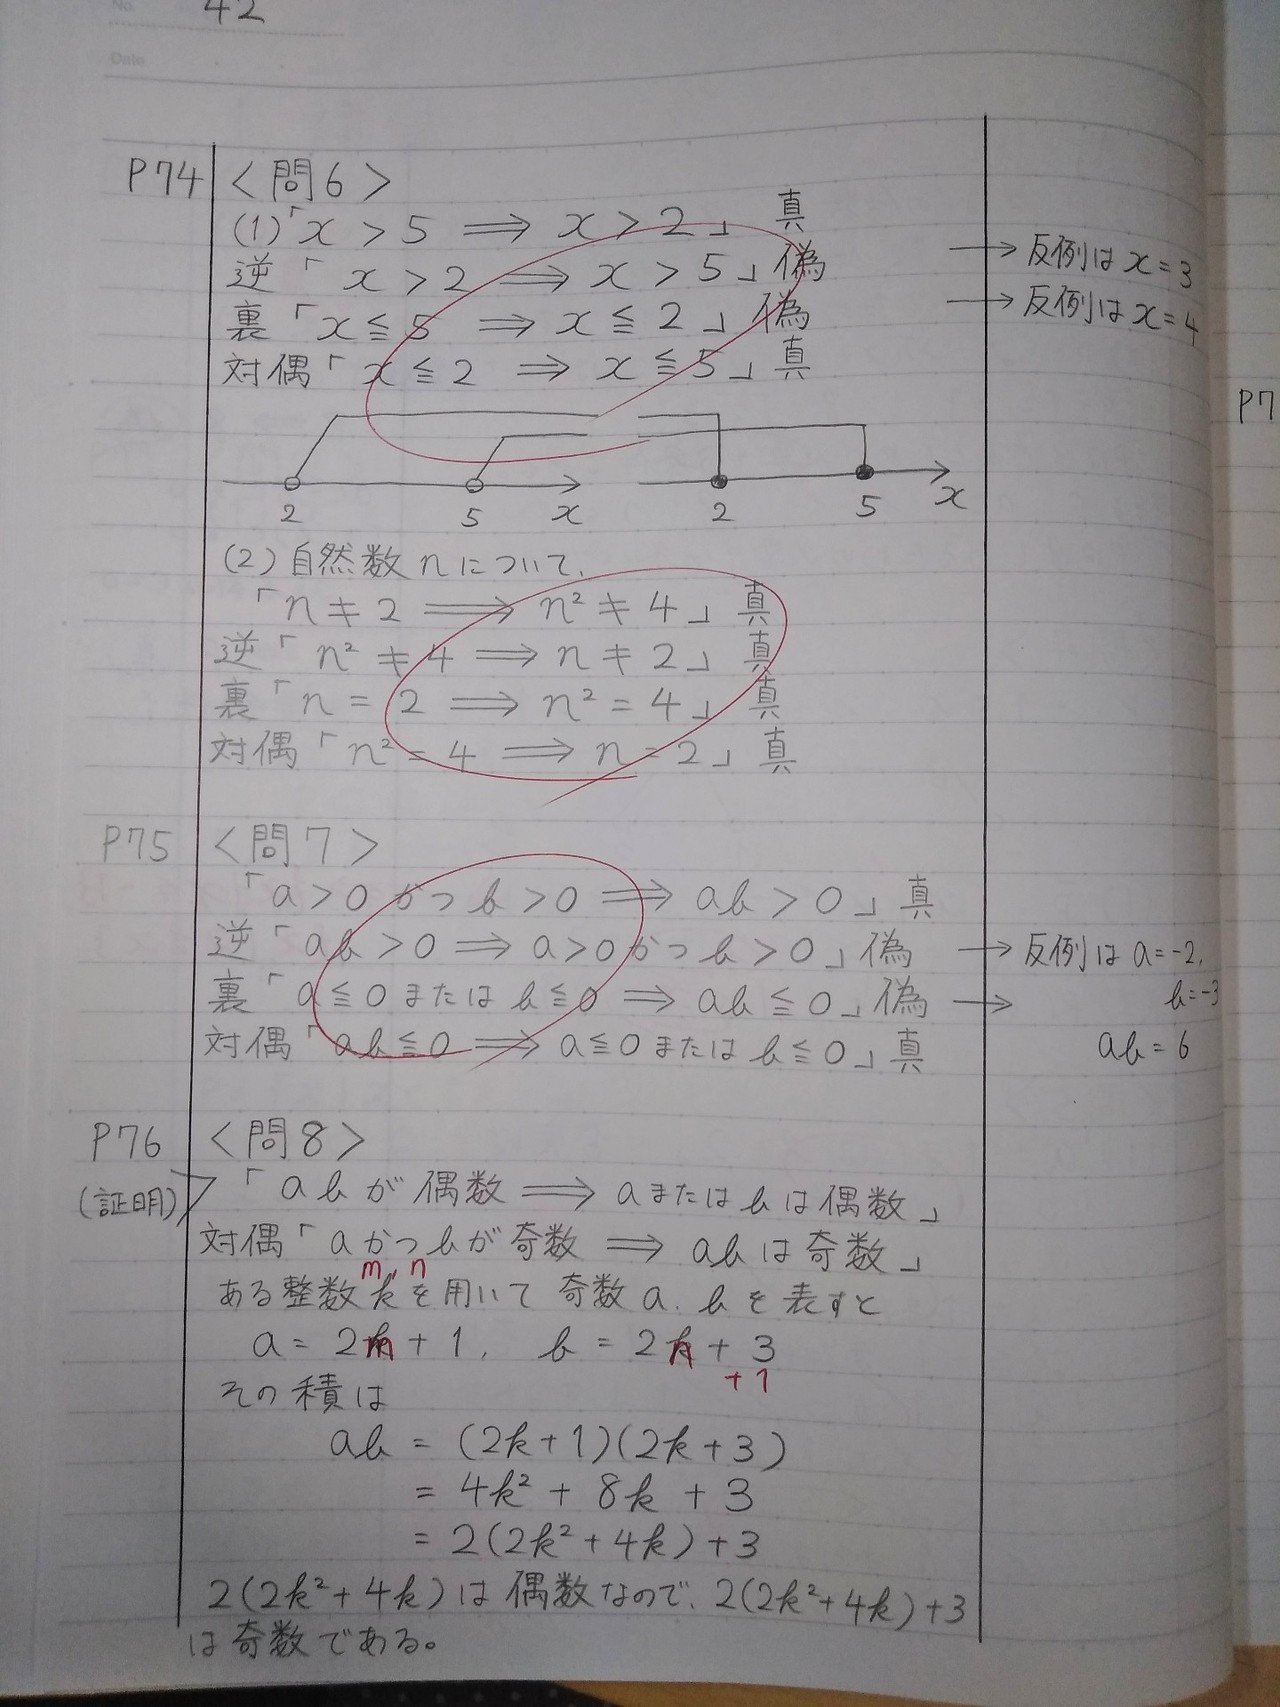 No. 42
Date
P74 <問6>
(1)「x > 5 ⟹ x > 2」 真
逆「x > 2 ⟹ x > 5」偽 → 反例は x = 3
裏「x ≦ 5 ⟹ x ≦ 2」偽 → 反例は x = 4
対偶「x ≦ 2 ⟹ x ≦ 5」真
2 5 x 2 5 x
(2) 自然数 n について,
「n ≠ 2 ⟹ n² ≠ 4」真
逆「n² ≠ 4 ⟹ n ≠ 2」真
裏「n = 2 ⟹ n² = 4」真
対偶「n² = 4 ⟹ n = 2」真
P75 <問7>
「a > 0 かつ b > 0 ⟹ ab > 0」真
逆「ab > 0 ⟹ a > 0 かつ b > 0」偽 → 反例は a = -2,
b = -3
裏「a ≦ 0 または b ≦ 0 ⟹ ab ≦ 0」偽 →
ab = 6
対偶「ab ≦ 0 ⟹ a ≦ 0 または b ≦ 0」真
P76 <問8>
(証明)「ab が 偶数 ⟹ a または b は 偶数」
対偶「a かつ b が 奇数 ⟹ ab は 奇数」
m, n
ある整数 k を用いて 奇数 a, b を表すと
a = 2m + 1, b = 2n + 3
+1
その積は
ab = (2k + 1)(2k + 3)
= 4k² + 8k + 3
= 2(2k² + 4k) + 3
2(2k² + 4k) は 偶数なので, 2(2k² + 4k) + 3
は奇数である。
P7